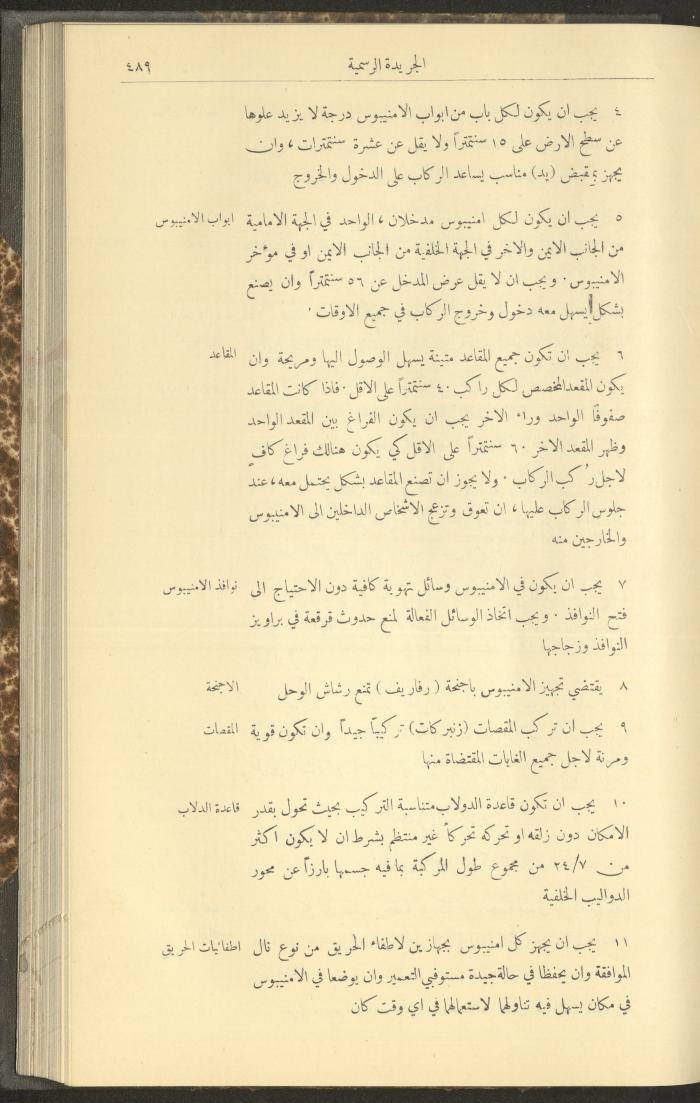 الجريدة الرسمية ٤٨٩
٤ يجب ان يكون لكل باب من ابواب الامنيبوس درجة لا يزيد علوها
عن سطح الارض على ١٥ سنتمتراً ولا يقل عن عشرة سنتمترات ، وان
يجهز بمقبض (يد) مناسب يساعد الركاب على الدخول والخروج
٥ يجب ان يكون لكل امنيبوس مدخلان ، الواحد في الجهة الامامية ابواب الامنيبوس
من الجانب الايمن والاخر في الجهة الخلفية من الجانب الايمن او في موٴخر
الامنيبوس . ويجب ان لا يقل عرض المدخل عن ٥٦ سنتمتراً وان يصنع
بشكل يسهل معه دخول وخروج الركاب في جميع الاوقات .
٦ يجب ان تكون جميع المقاعد متينة يسهل الوصول اليها ومريحة وان المقاعد
يكون المقعد المخصص لكل راكب ٤٠ سنتمتراً على الاقل . فاذا كانت المقاعد
صفوفًا الواحد وراء الاخر يجب ان يكون الفراغ بين المقعد الواحد
وظهر المقعد الاخر ٦٠ سنتمتراً على الاقل كي يكون هنالك فراغ كافٍ
لاجل رُكب الركاب . ولا يجوز ان تصنع المقاعد بشكل يحتمل معه ، عند
جلوس الركاب عليها ، ان تعوق وتزعج الاشخاص الداخلين الى الامنيبوس
والخارجين منه
٧ يجب ان يكون في الامنيبوس وسائل تهوية كافية دون الاحتياج الى نوافذ الامنيبوس
فتح النوافذ . ويجب اتخاذ الوسائل الفعالة لمنع حدوث قرقعة في براويز
النوافذ وزجاجها
٨ يقتضي تجهيز الامنيبوس باجنحة ( رفاريف ) تمنع رشاش الوحل الاجنحة
٩ يجب ان تركب المقصات (زنبركات) تركيباً جيداً وان تكون قوية المقصات
ومرنة لاجل جميع الغايات المقتضاة منها
١٠ يجب ان تكون قاعدة الدولاب متناسبة التركيب بحيث تحول بقدر قاعدة الدلاب
الامكان دون زلقه او تحركه تحركاً غير منتظم بشرط ان لا يكون اكثر
من ٢٤/٧ من مجموع طول المركبة بما فيه جسمها بارزاً عن محور
الدواليب الخلفية
١١ يجب ان يجهز كل امنيبوس بجهازين لاطفاء الحريق من نوع نال اطفائيات الحريق
الموافقة وان يحفظا في حالة جيدة مستوفيي التعمير وان يوضعا في الامنيبوس
في مكان يسهل فيه تناولهما لاستعمالهما في اي وقت كان